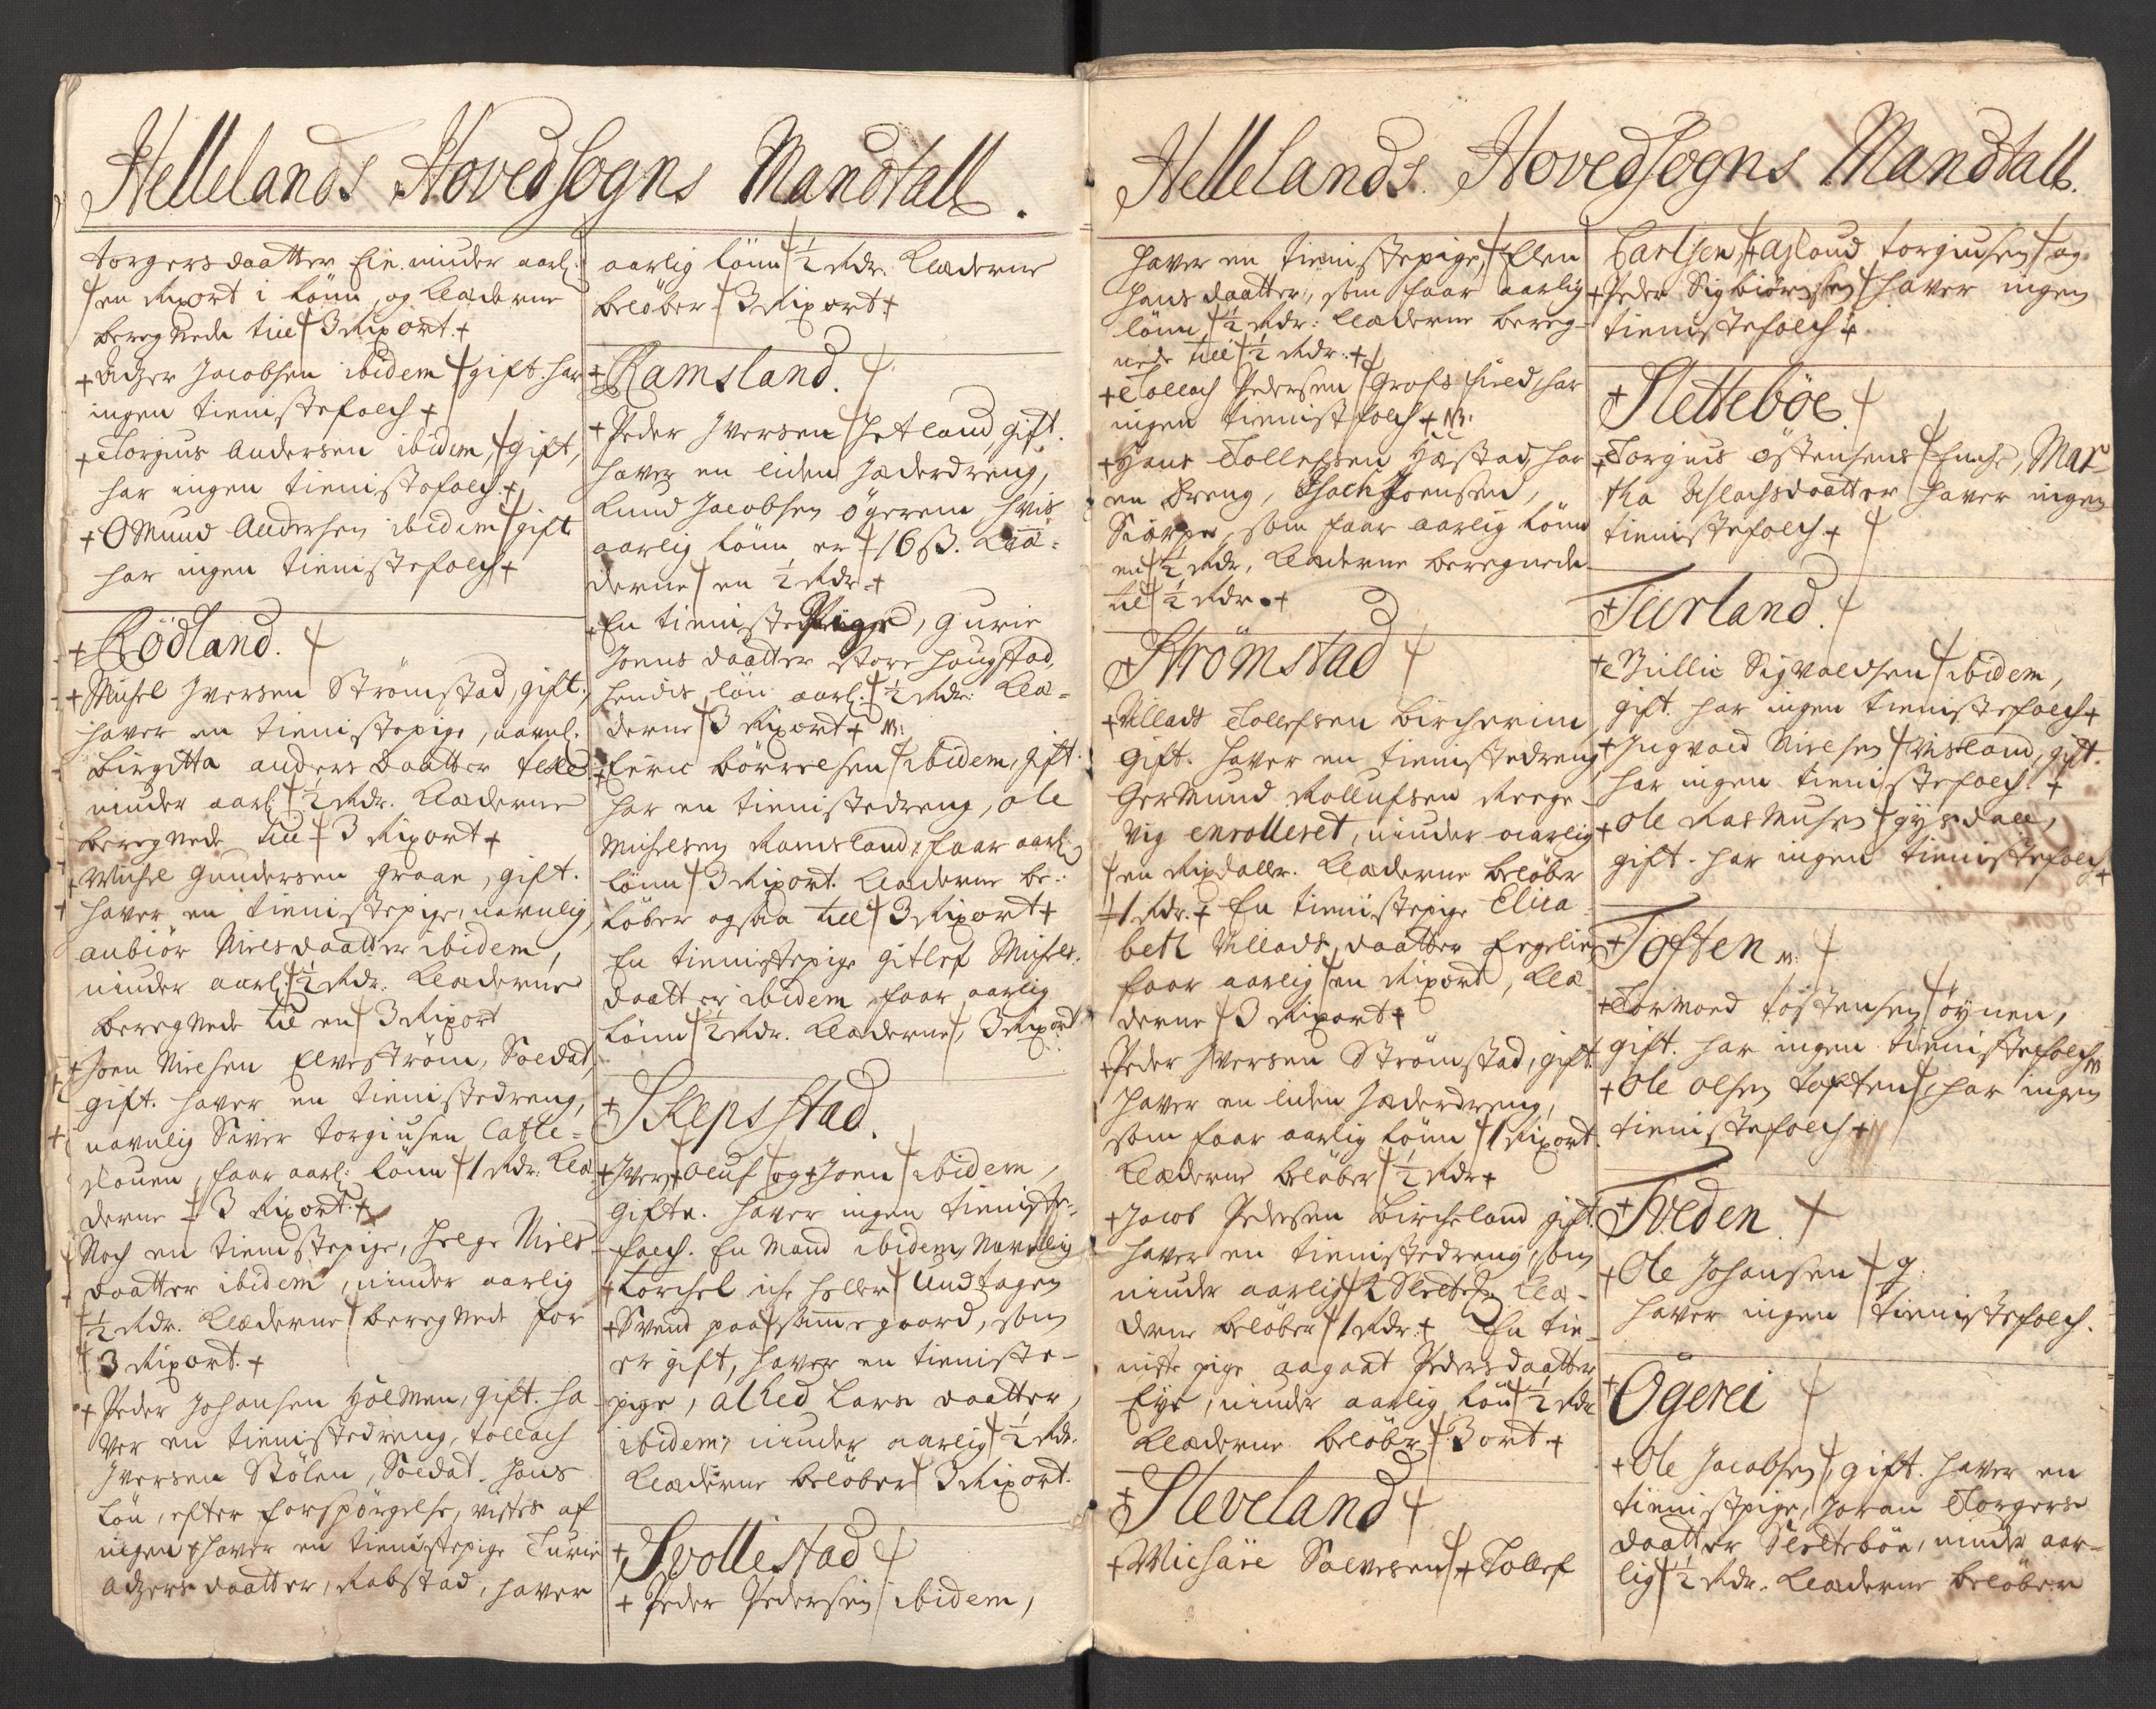 Hellelands Hovedsogns Mandtall.
torgersdaatter Eie. niuder aarl:
en Rixort i lönn, og Klæderne
beregnede till 3 Rixort +
+ Adzer Jacobsen ibidem gift. har
ingen tienistefolch +
+ Torgius Andersen ibidem, gift,
har ingen tienistefolch. +
+ OMund Andersen ibidem gift
har ingen tienistefolch +
+ Rödland.
+ Michel Iversen Strömstad, gift.
haver en tienistepige, navnl.
Birgitta anders Daatter
niuder aarl: ½ Rdr. Klæderne
beregnede till 3 Rixort +
+ Michel Gundersen Graae, gift.
haver en tienistepige, navnlig,
anbiör Nielsdaatter ibidem,
niuder aarl: ½ Rdr. Klæderne
beregnede til en 3 Rixort
+ Joen Nielsen Elvestrøm, Soldat,
gift. haver en tienistedreng,
navnlig Siver torgiusen Catle-
, faar aarl: lönn 1 Rdr. Klæ-
derne 3 Rixort. +
Noch en tienistepige, Helge Niels-
daatter ibidem, niuder aarlig
½ Rdr. Klæderne beregnede for
3 Rixort. +
+ Peder Johansen Holmen, gift. ha-
ver en tienistedreng, tollach
Iversen Stölen, Soldat. hans
lön, efter forspörgelse, vistes af
ingen + haver en tienistepige Turie
Adzersdaatter, Rabstad, haver
aarlig lönn ½ Rdr. Klæderne
belöber 3 Rixort +
+ Ramsland.
+ Peder Iversen Hetland gift.
haver en liden Hæderdreng,
Knud Jacobsen ögereni hvis
aarlig lönn er 16 ß. Klæ-
derne en ½ Rdr +
+ En tieniste Pige, Gurie
Joensdaatter store Haugstad,
hendis lön aarl: ½ Rdr: Klæ-
derne 3 Rixort + N:
+ Eric Börrelsen ibidem, gift.
har en tienistedreng, ole
Michelsen Ramsland, faar aarl:
lönn 3 Rixort. Klæderne be-
löber ogsaa till 3 Rixort +
En tienistepige Gitlef Michels-
daatter ibidem, faar aarlig
lönn ½ Rdr. Klæderne, 3 Rixort
+ Skepsstad.
+ Iver, + oluf og + Joen ibidem,
gifte. haver ingen tieniste-
folch. En Mand ibidem Navnlig
+ Torchel iche heller Undtagen
+ Svend paa samme gaard, som
er gift, haver en tieniste-
pige, alhed Lars daatter,
ibidem, niuder aarlig ½ Rdr.
Klæderne belöber 3 Rixort.
+ Svollestad
+ Peder Pedersen ibidem,
Hellelands Hovedsogns Mandtall.
haver en tienistepige, Elen
Hansdaatter, som faar aarlig
lönn ½ Rdr: Klæderne bereg-
nede till ½ Rdr. +
+ Tollach Pedersen Grosfield, har
ingen tienistfolch + N:
+ Hans Tollefsen Hæstad, har
en Dreng, Joensen,
, som faar aarlig lönn
en ½ Rdr, Klæderne beregnede
til ½ Rdr. +
+ Strömstad
+ Villads Tollefsen Bircherim
gift. haver en tienistedreng
GerMund Rollufsen Rege-
vig enrolleret, niuder aarlig
en Rixdaller. Klæderne belöber
1 Rdr. + En tienistepige Elisa-
beth Villads daatter Eegelie
faar aarlig en Rixort, Klæ-
derne 3 Rixort +
+ Peder Iversen Strömstad, gift
haver en liden Hæderdreng,
som faar aarlig lönn 1 Rixort.
Klæderne belöber ½ Rdr +
+ Jacob Pedersen Bircheland gift.
haver en tienistedreng, som
niuder aarlig 2 Sletdr Klæ-
derne belöber 1 Rdr. + En tie-
niste pige aagaat Pedersdaatter
Eye, niuder aarlig lön ½ Rdr
Klæderne belöber 3 ort +
+ Sleveland
+ Michäil Salvesen, + Tollef
Carlsen, + Asloud torgiusen og
+ Peder Sigbiörnsen haver ingen
tienistefolch +
+ Sletteböe.
+ Torgius östensens Enche, Mar-
tha Aslachsdaatter haver ingen
tienistefolch +
+ Tuurland.
+ Villie Sigvaldsen ibidem,
gift. har ingen tienistefolch +
+ Ingvald Nielsen Misland, gift.
har ingen tienistefolch. +
+ Ole RasMusen gysdall,
gift. har ingen tienistefolch +
+ Toften N:
+ Tormod töstensen öynen,
gift. har ingen tienistefolch N
+ Ole olsen toften, har ingen
tienistefolch +
+ Tveden
+ Ole Johansen g.
haver ingen tienistefolch.
+ Ögerei
+ Ole Jacobsen, gift. haver en
tienistpige, Joran Torgers-
daatter Slettebøe, niuder aar-
lig ½ Rdr. Klæderne belöber